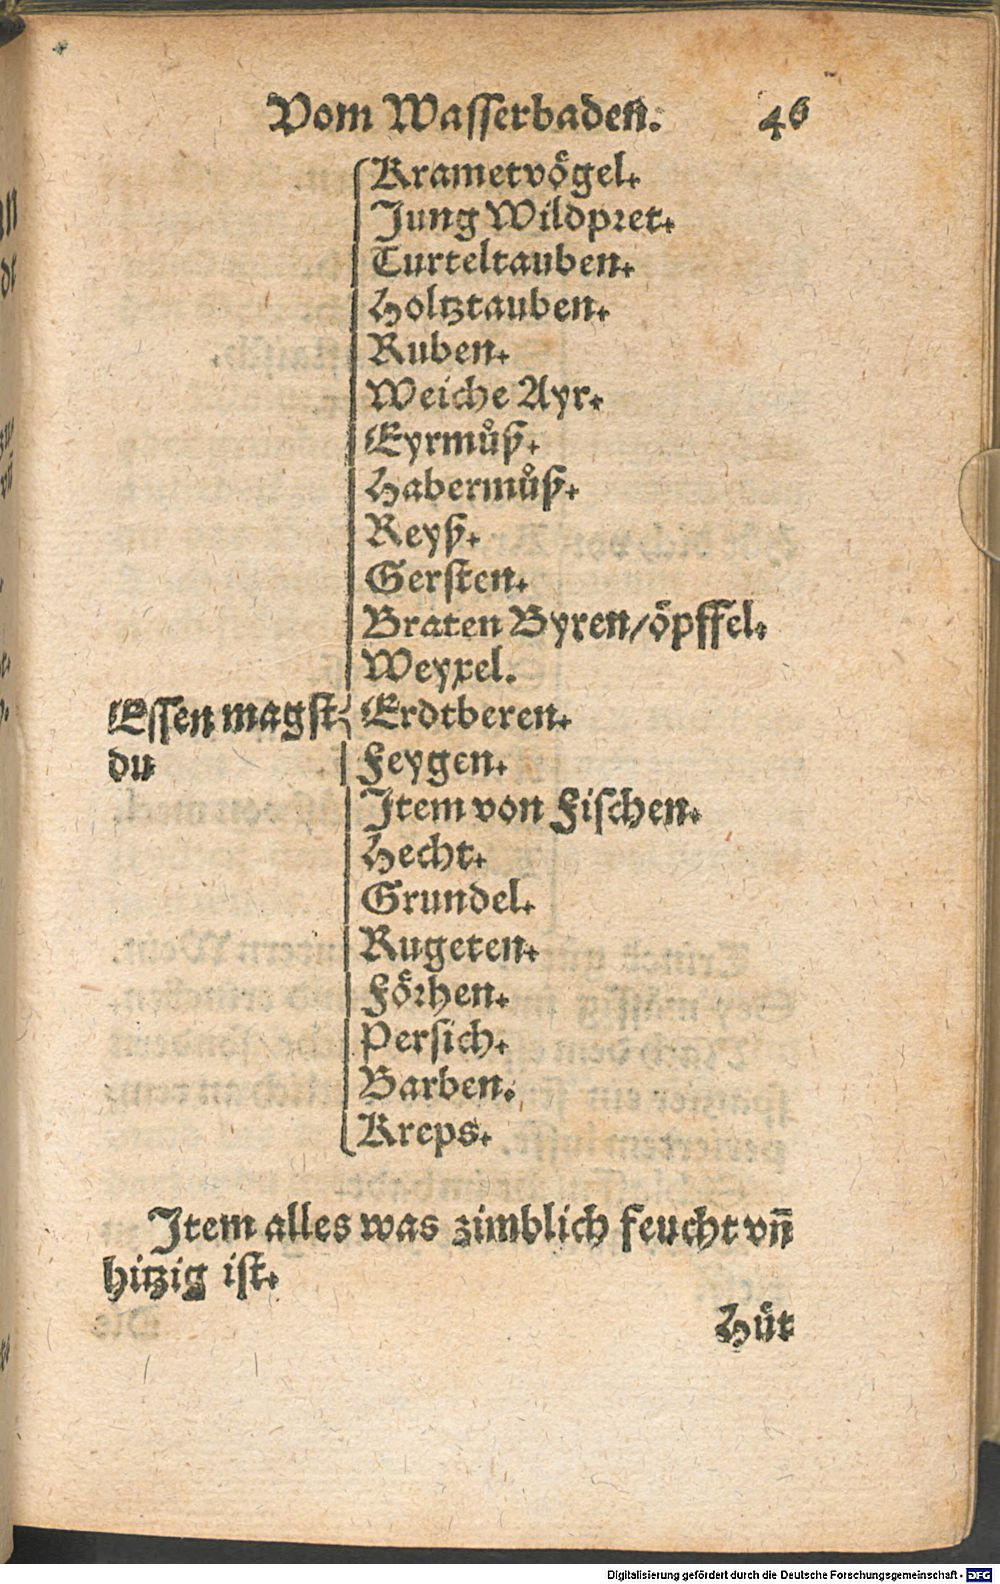 Vom Wasserbaden. 46
Krametvoͤgel.
Jung Wildpret.
Turteltauben.
Holtztauben.
Ruben.
Weiche Ayr.
Eyrmuͦß.
Habermuͦß.
Reyß.
Gersten.
Braten Byren/oͤpffel.
Weyxel.
Essen magst Erdtberen.
du Feygen.
Item von Fischen.
Hecht.
Grundel.
Rugeten.
Foͤrhen.
Persich.
Barben.
Kreps.
Item alles was zimblich feucht vn̄
hitzig ist.
Huͤt
Digitalisierung gefördert durch die Deutsche Forschungsgemeinschaft - DFG